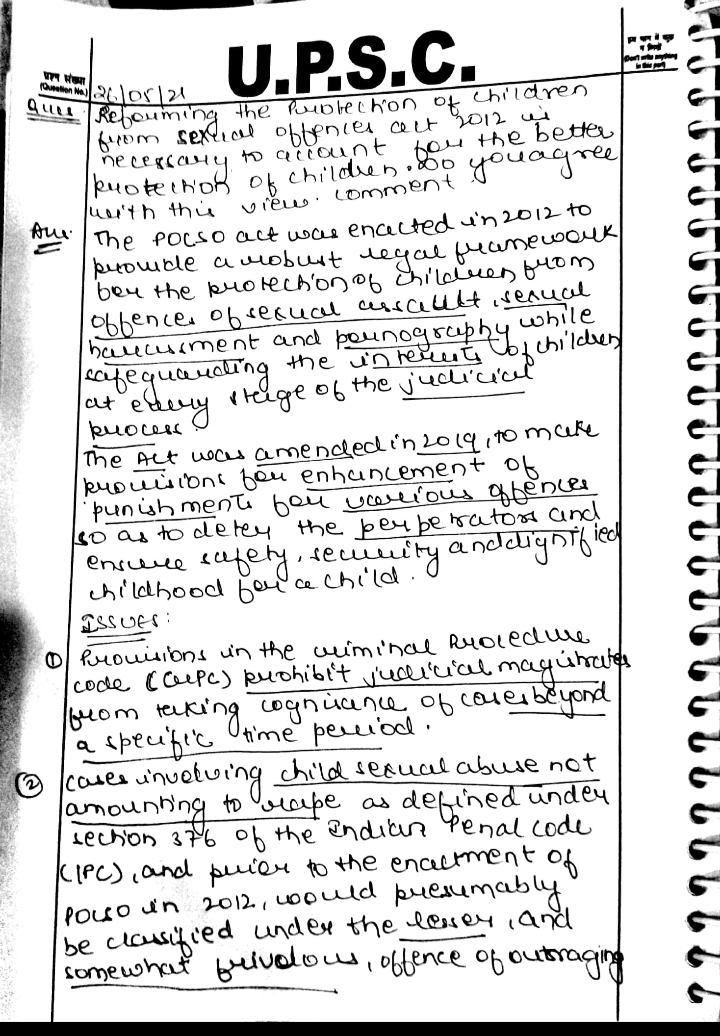 U.P.S.C.
प्रश्न संख्या
(Question No.)
इस भाग में कुछ
न लिखें
(Don't write anything
in this part)
26/05/21
Ques. Reforming the Protection of Children
from sexual offences act 2012 is
necessary to account for the better
protection of children. Do you agree
with this view. Comment.
Ans. The POCSO act was enacted in 2012 to
provide a robust legal framework
for the protection of children from
offences of sexual assault, sexual
harassment and pornography while
safeguarding the interests of children
at every stage of the judicial
process.
The Act was amended in 2019, to make
provisions for enhancement of
punishments for various offences
so as to deter the perpetrators and
ensure safety, security and dignified
childhood for a child.
ISSUES:
① Provisions in the criminal Procedure
code (CrPC) prohibit judicial magistrates
from taking cognisance of cases beyond
a specific time period.
② cases involving child sexual abuse not
amounting to rape as defined under
section 376 of the Indian Penal code
(IPC), and prior to the enactment of
POCSO in 2012, would presumably
be classified under the lesser, and
somewhat frivolous, offence of outraging